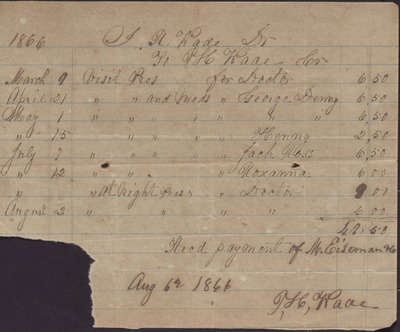 1866 J. R. Kade Dr
To P. H. Kade Cr
March 9 Visit Pres for Doctor 6,50
April 21 " " and Meds " George Denny 6,50
May 1 " " " " " " " 6,50
" 15 " " " " " Henny 2,50
July 7 " " " " " Jack Ross 6,50
" 12 " " " " Roxanna 6.00
" " At Night Pres " Doctor 9.00
August 2 " " " " " 6.00
42.50
Recd payment of M. Eiserman
Aug 6th 1866
P, H, Kade